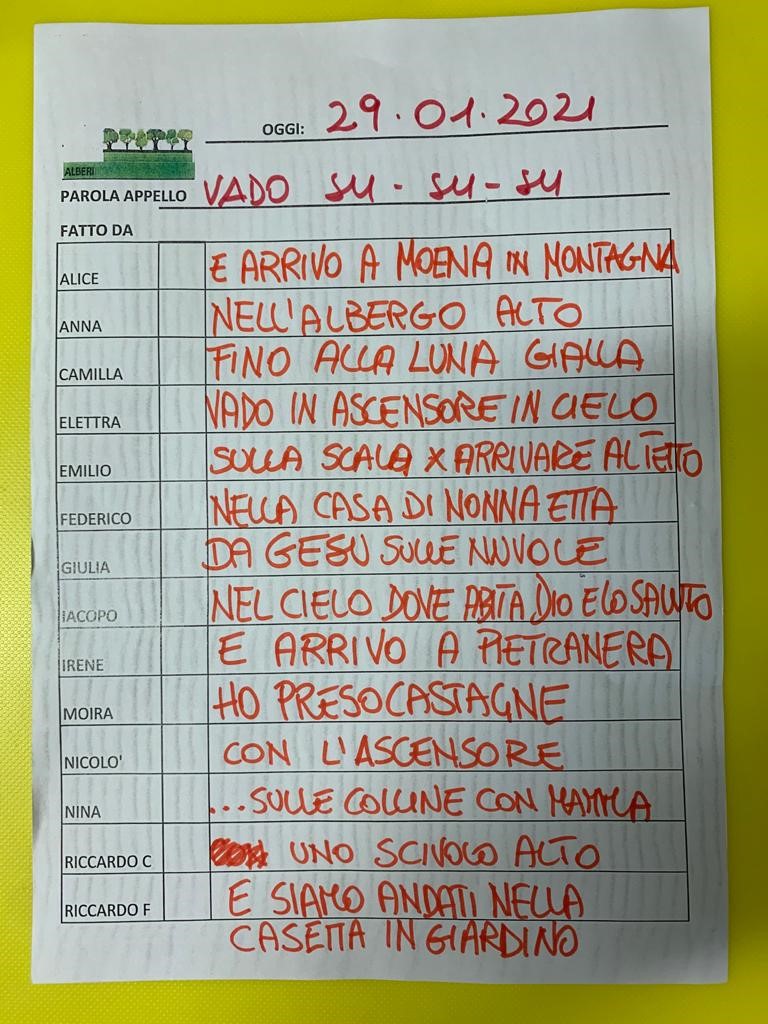 OGGI: 29.01.2021
ALBERI
PAROLA APPELLO VADO SU - SU - SU
FATTO DA
ALICE E ARRIVO A MOENA IN MONTAGNA
ANNA NELL'ALBERGO ALTO
CAMILLA FINO ALLA LUNA GIALLA
ELETTRA VADO IN ASCENSORE IN CIELO
EMILIO SULLA SCALA X ARRIVARE AL TETTO
FEDERICO NELLA CASA DI NONNA ETTA
GIULIA DA GESU SULLE NUVOLE
IACOPO NEL CIELO DOVE ABITA DIO E LO SALUTO
IRENE E ARRIVO A PIETRANERA
MOIRA HO PRESO CASTAGNE
NICOLO' CON L'ASCENSORE
NINA ...SULLE COLLINE CON MAMMA
RICCARDO C UNO SCIVOLO ALTO
RICCARDO F E SIAMO ANDATI NELLA
CASETTA IN GIARDINO